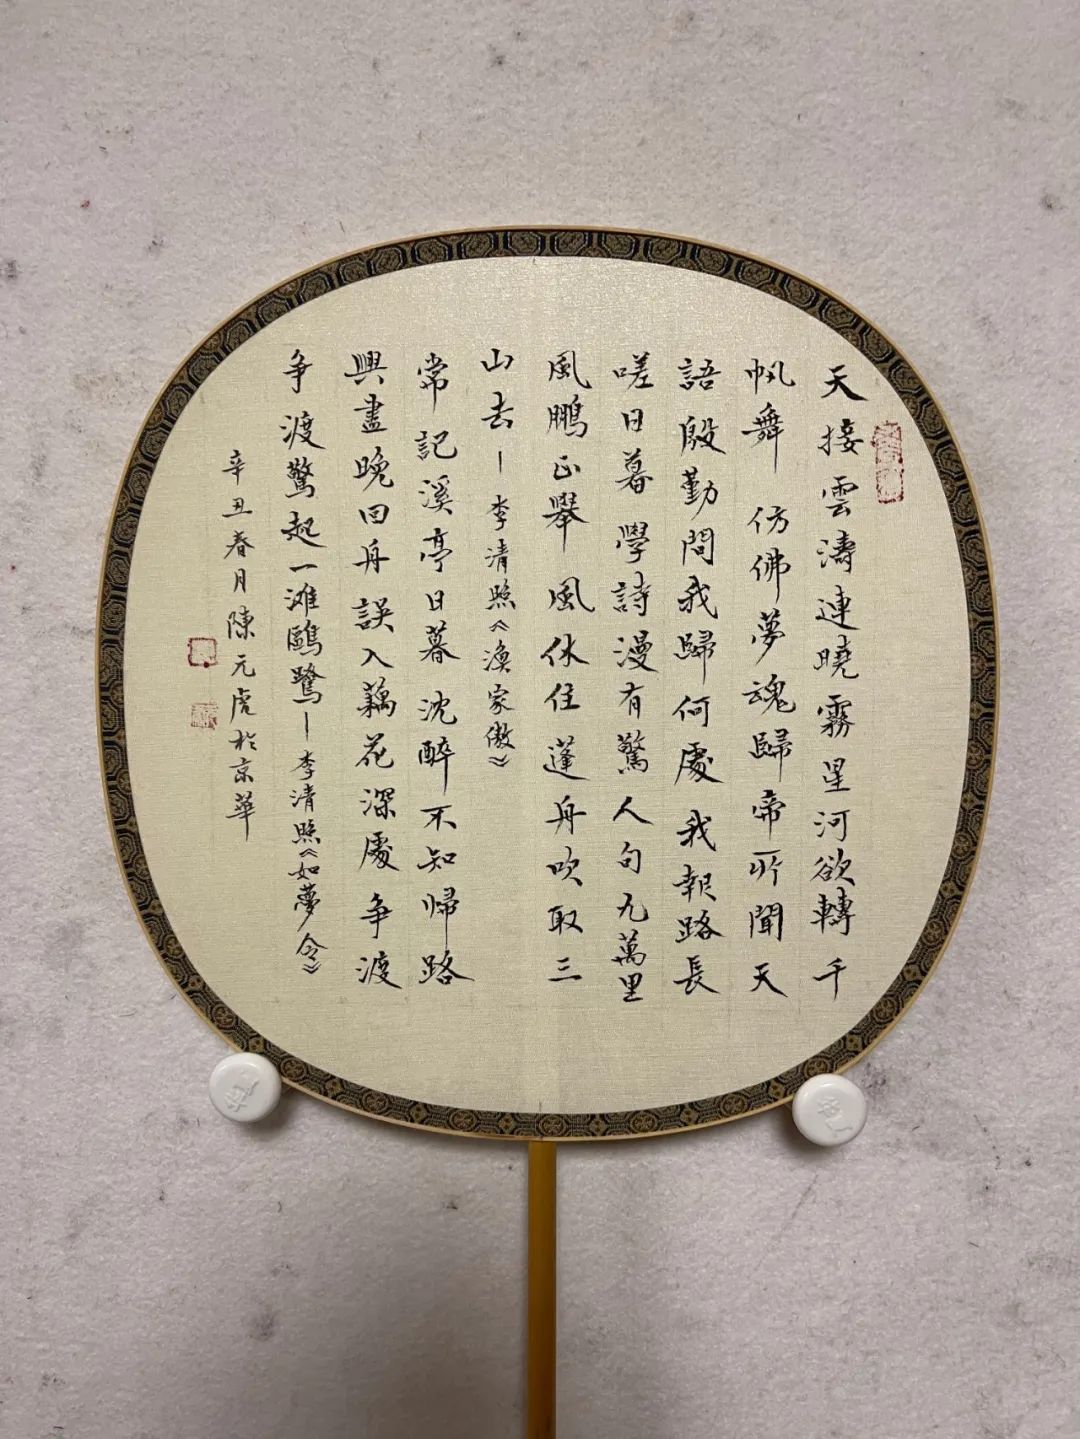 天接雲濤連曉霧星河欲轉千
帆舞 仿佛夢魂歸帝所聞天
語殷勤問我歸何處 我報路長
嗟日暮 學詩漫有驚人句九萬里
風鵬正舉 風休住蓬舟吹取三
山去－李清照《漁家傲》
常記溪亭日暮 沈醉不知歸路
興盡晚回舟 誤入藕花深處 爭渡
爭渡驚起一滩鷗鷺－李清照《如夢令》
辛丑春月陳元虎於京華